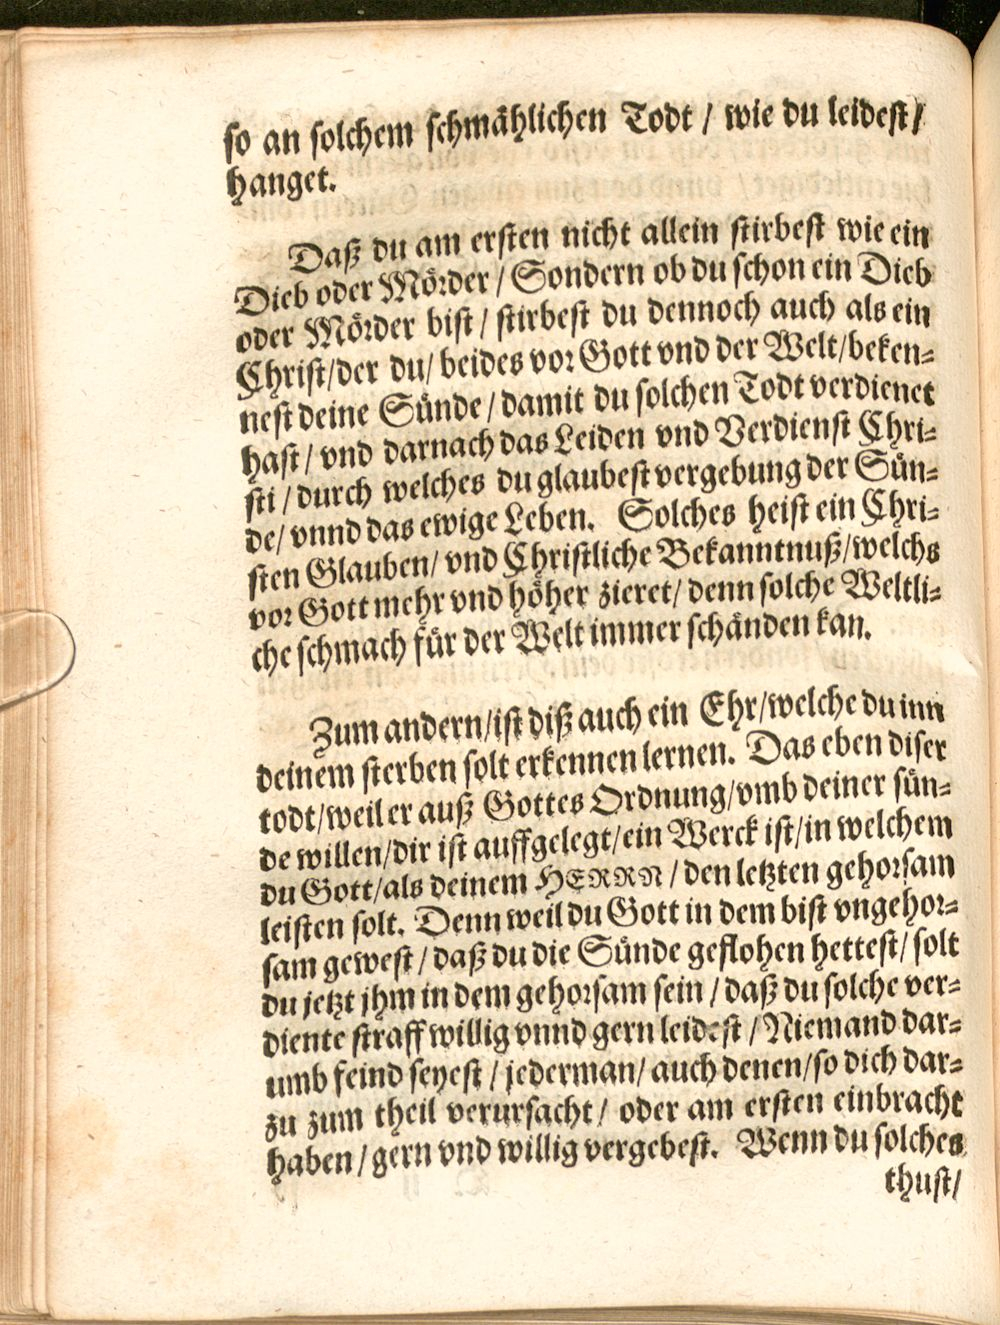 so an solchem schmählichen Todt / wie du leidest /
hanget.
Daß du am ersten nicht allein stirbest wie ein
Dieb oder Mörder / Sondern ob du schon ein Dieb
oder Mörder bist / stirbest du dennoch auch als ein
Christ / der du / beides vor Gott vnd der Welt / beken⸗
nest deine Sünde / damit du solchen Todt verdienet
hast / vnd darnach das Leiden vnd Verdienst Chri⸗
sti / durch welches du glaubest vergebung der Sün⸗
de / vnnd das ewige Leben. Solches heist ein Chri⸗
sten Glauben / vnd Christliche Bekanntnuß / welchs
vor Gott mehr vnd höher zieret / denn solche Weltli⸗
che schmach für der Welt immer schänden kan.
Zum andern / ist diß auch ein Ehr / welche du inn
deinem sterben solt erkennen lernen. Das eben diser
todt / weil er auß Gottes Ordnung / vmb deiner sün⸗
de willen / dir ist auffgelegt / ein Werck ist / in welchem
du Gott / als deinem HERRN / den letzten gehorsam
leisten solt. Denn weil du Gott in dem bist vngehor⸗
sam gewest / daß du die Sünde geflohen hettest / solt
du jetzt jhm in dem gehorsam sein / daß du solche ver⸗
diente straff willig vnnd gern leidest / Niemand dar⸗
umb feind seyest / jederman / auch denen / so dich dar⸗
zu zum theil verursacht / oder am ersten einbracht
haben / gern vnd willig vergebest. Wenn du solches
thust /